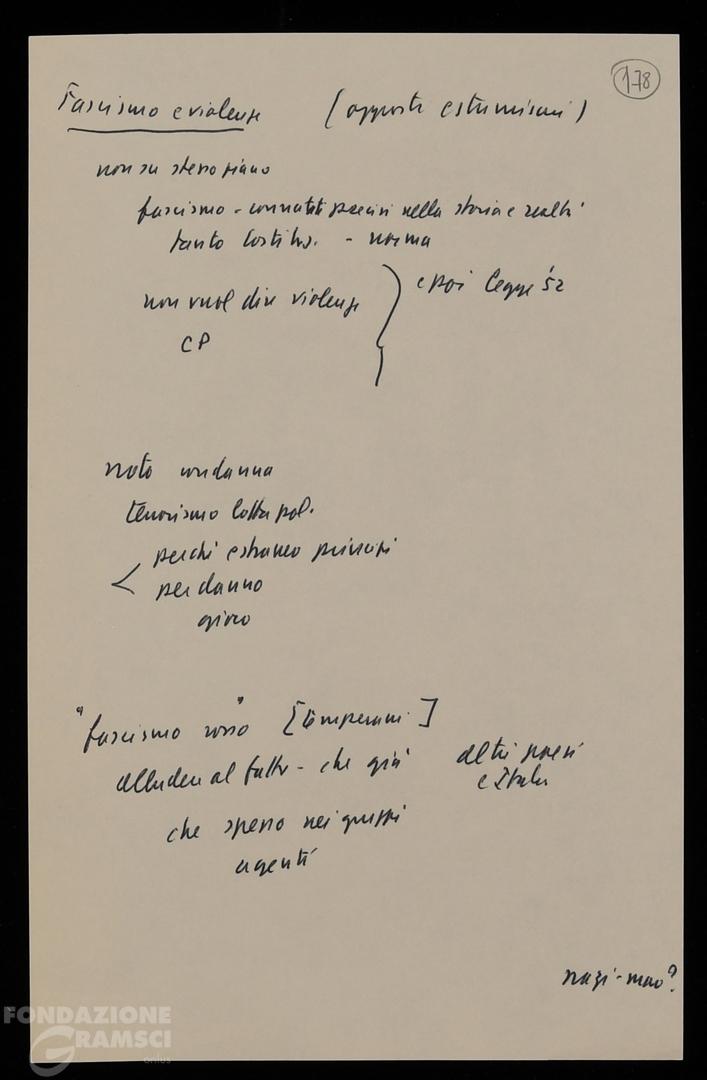 178
Fascismo e violenza (opposti estremismi)
non su stesso piano
fascismo - connotati precisi nella storia e realtà
tanto Costituz. - norma
non vuol dire violenza
e poi legge '52
CP
nota condanna
terrorismo lotta pol.
perché estraneo principi
per danno
gioco
"fascismo rosso" [Temperani]
alludere al fatto - che già altri paesi
e Italia
che spesso nei gruppi
agenti
nazi-mao?
FONDAZIONE
GRAMSCI
onlus